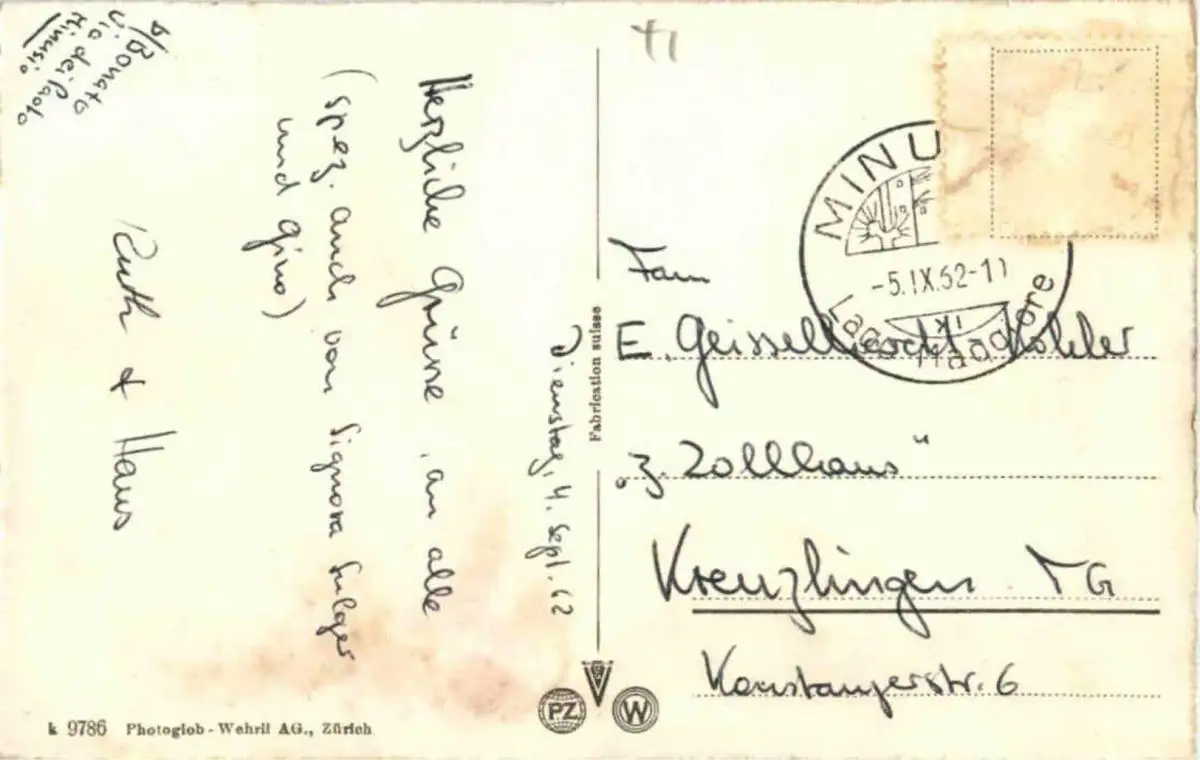 b/Bonato
Via dei Paolo
Minusio
Dienstag, 4. Sept. 62
Herzliche Grüsse, an alle
(spez. auch von Signora Sulger
und Gino)
Ruth + Hans
Fabrication suisse
MINU
-5.IX.62-11
Lago Maggiore
Fam
E. Geisselhardt-Kohler
"z. Zollhaus"
Kreuzlingen TG
Konstanzerstr. 6
PZ
W
k 9786 Photoglob-Wehrli AG., Zürich